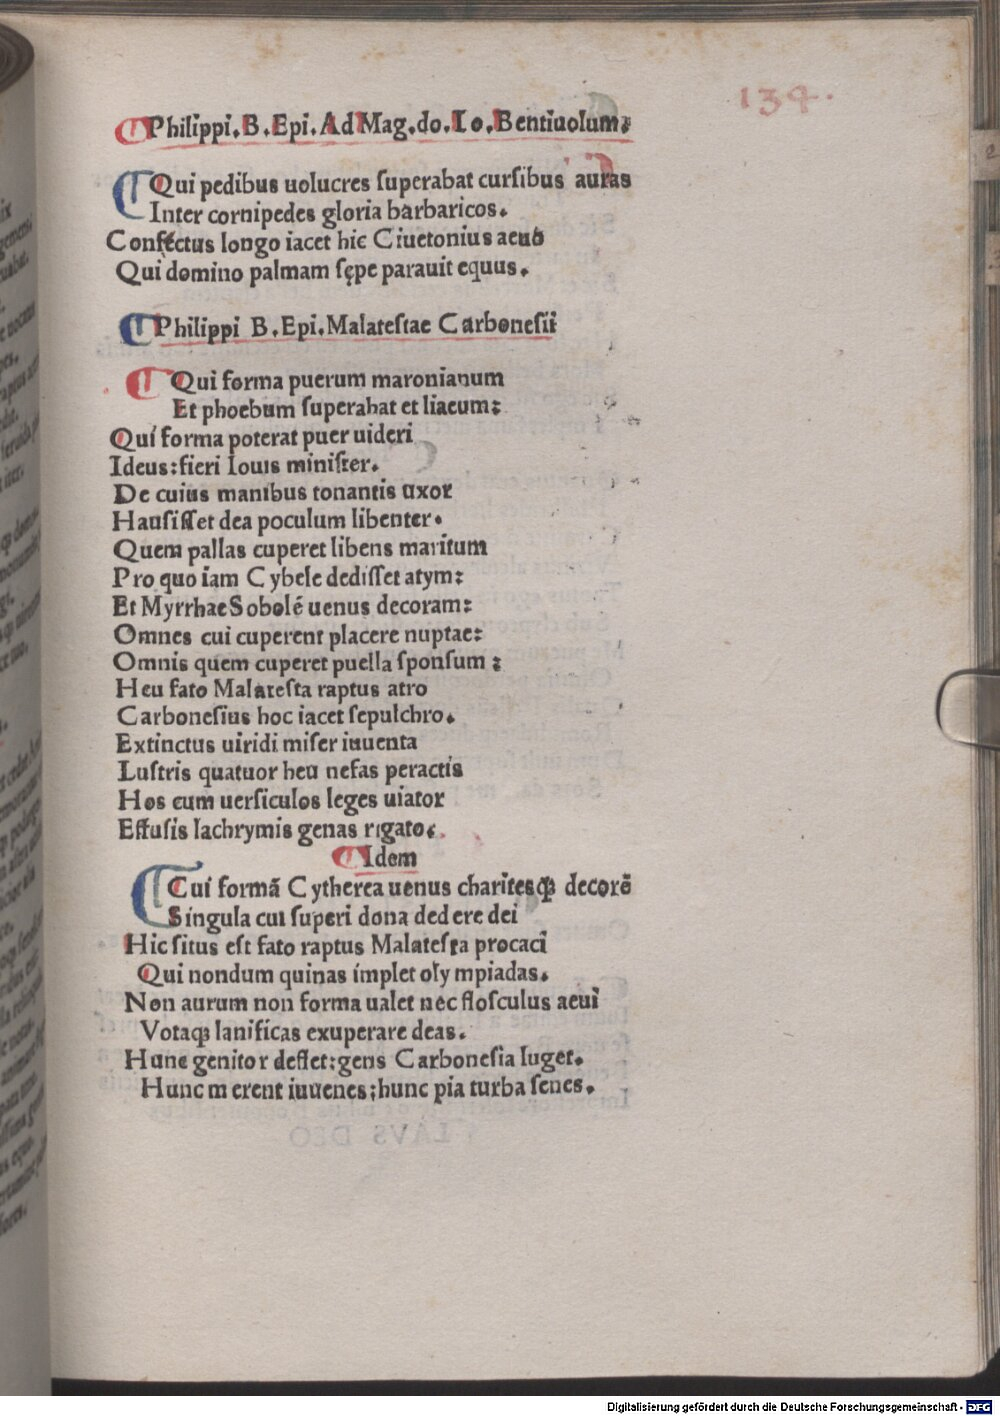 134.
Philippi.B.Epi.Ad Mag.do.Io.Bentiuolum:
Qui pedibus uolucres ſuperabat curſibus auras
Inter cornipedes gloria barbaricos.
Confectus longo iacet hic Ciuetonius aeuo
Qui domino palmam sępe parauit equus.
Philippi B.Epi.Malateſtae Carboneſii
Qui forma puerum maronianum
Et phoebum ſuperabat et liaeum:
Qui forma poterat puer uideri
Ideus:fieri Iouis miniſter.
De cuius manibus tonantis uxor
Hauſiſſet dea poculum libenter.
Quem pallas cuperet libens maritum
Pro quo iam Cybele dediſſet atym:
Et Myrrhae Sobolé uenus decoram:
Omnes cui cuperent placere nuptae:
Omnis quem cuperet puella ſponſum:
Heu fato Malateſta raptus atro
Carboneſius hoc iacet ſepulchro.
Extinctus uiridi miſer iuuenta
Luſtris quatuor heu nefas peractis
Hos cum uerſiculos leges uiator
Effuſis lachrymis genas rigato.
Idem
Cui formā Cytherea uenus charitesqꝫ decorē
Singula cui ſuperi dona dedere dei
Hic ſitus eſt fato raptus Malateſta procaci
Qui nondum quinas implet olympiadas.
Non aurum non forma ualet nec floſculus aeui
Votaqꝫ lanificas exuperare deas.
Hunc genitor deflet:gens Carboneſia luget.
Hunc merent iuuenes:hunc pia turba ſenes.
Digitalisierung gefördert durch die Deutsche Forschungsgemeinschaft - DFG